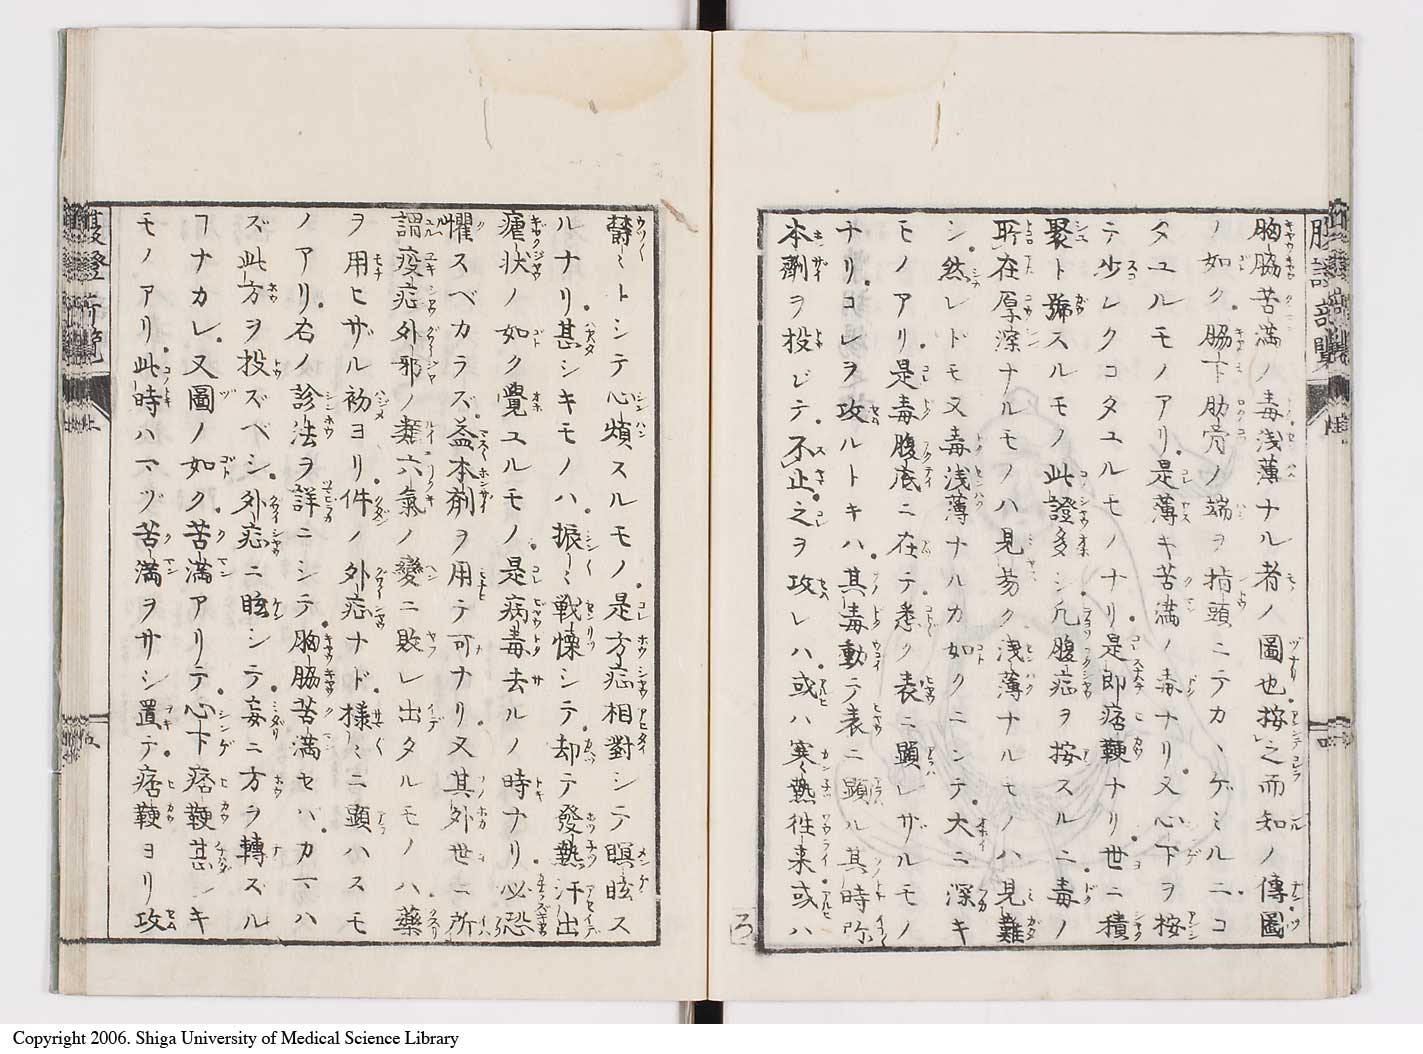 胸脇苦満ノ毒浅薄ナル者ノ圖也按之而知ノ傳圖
ノ如ク脇下肋骨ノ端ヲ指頭ニテカヽゲミルニコ
タユルモノアリ是薄キ苦満ノ毒ナリ又心下ヲ按
テ少レクコタユルモノナリ是即痞鞕ナリ世ニ積
聚ト號スルモノ此證多シ凢腹症ヲ按スルニ毒ノ
所在厚深ナルモノハ見易ク浅薄ナルモノハ見難
シ然レドモ又毒浅薄ナルカ如クニシテ大ニ深キ
モノアリ是毒腹底ニ在テ悉ク表ニ顕レザルモノ
ナリコレヲ攻ルトキハ其毒動テ表ニ顕ル其時弥
本劑ヲ投ビテ不止之ヲ攻レハ或ハ寒熱徃来或ハ
欝〻トシテ心煩スルモノ是方症相對シテ瞑眩ス
ルナリ甚シキモノハ振〻戦慄シテ却テ發熱汗出
瘧状ノ如ク覺ユルモノ是病毒去ルノ時ナリ必恐
懼スベカラズ益本劑ヲ用テ可ナリ又其外世ニ所
謂疫症外邪ノ類六氣ノ變ニ敗レ出タルモノハ藥
ヲ用ヒザル初ヨリ件ノ外症ナド様〻ニ顕ハスモ
ノアリ右ノ診法ヲ詳ニシテ胸脇苦満セバカマハ
ズ此方ヲ投ズベシ外症ニ眩シテ妄ニ方ヲ轉ズル
ヿナカレ又圖ノ如ク苦満アリテ心下痞鞕甚シキ
モノアリ此時ハマヅ苦満ヲサシ置テ痞鞕ヨリ攻
Copyright 2006. Shiga University of Medical Science Library